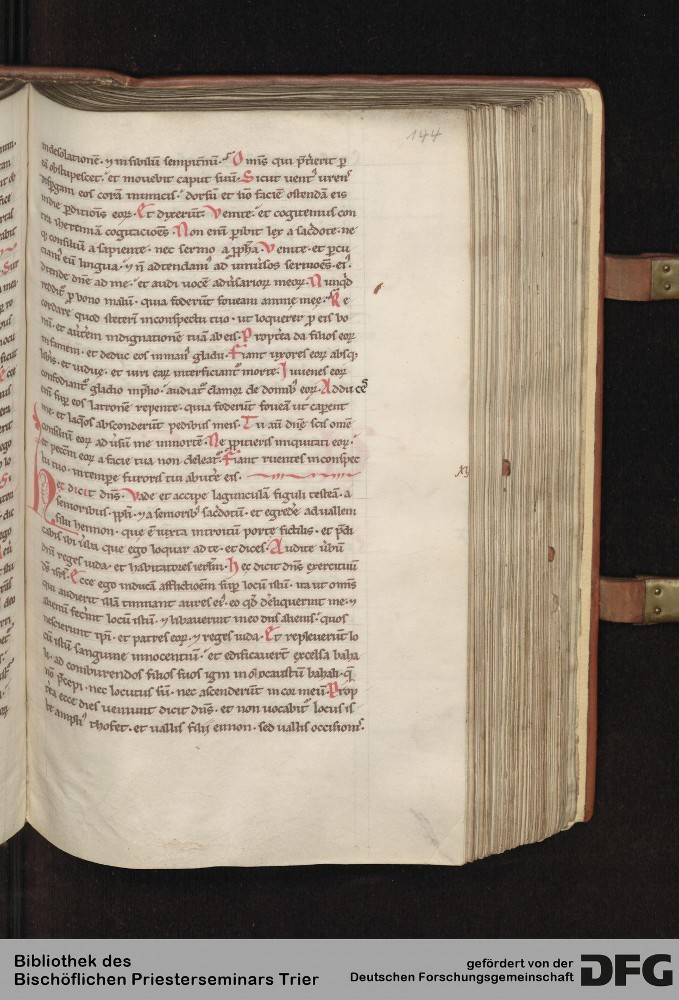 144
in desolationē · ⁊ in sibilū sempit̄nū · Om̄is qui p̄t̄ierit p
eā obstupescet · et movebit caput suū · Sicut uent᷒ urens
disp̄gam eos corā inimicis · dorsū et nō faciē ostendā eis
in die p̄ditionis eoꝝ · Et dixerūt · Venite · et cogitemus con
tra iheremiā cogitaciões · Non enī peribit lex a sac̄dote · ne
qꝫ consiliū a sapiente · nec sermo a ꝓph̄a · Venite · et p̄cu
ciam᷒ eū lingua · ⁊ n̄ adtendam᷒ ad uniūsos sermoēs ei᷒ ·
Adtende dn̄e ad me · et audi uocē adūsarioꝝ meoꝝ · Nunqd̄
reddit᷑ ꝓ bono malū · quia foderūt foueam anime meę · Re
cordare quod steterī in conspectu tuo · ut loquerer ꝓ eis bo
nū · et aūterē indignationē tuā ab eis · Propt̄ea da filios eoꝝ
in famem · et deduc eos in man᷒ gladii · Fiant uxores eoꝝ absqꝫ
lib̄is · et uidue · et uiri eaꝝ interficiant᷑ morte · Iuuenes eoꝝ
confodiant᷑ gladio in p̄lio · audiat᷑ clamor de domib᷒ eoꝝ · Adduces
enī sup eos latronē repente · quia foderūt foueā ut capent
me · et laq̄os absconderūt pedibus meis · Tu aū dn̄e scis om̄e
consiliū eoꝝ ad ūsū me in mortē · Ne ꝓpitieris iniquitati eoꝝ ·
et pecc̄m eoꝝ a facie tua non deleat᷑ · Fiant ruentes in conspec
tu tuo · in tempe furoris tui abutere eis ·
xỹ
Hec dicit dn̄s · Vade et accipe lagunculā figuli testeā · a
senioribus pp̄li · ⁊ a seniorib᷒ sac̄dotū · et egrede ad uallem
filii hennon · que ē iuxta introitū porte fictilis · et p̄di
cabis ibi uerba que ego loquar ad te · et dices · Audite ūbū
dn̄i reges iuda · et habitatores ierl̄m · Hec dicit dn̄s exercituū
ds̄ isr̄l · Ecce ego inducā afflictioēm sup locū istū · ita ut om̄is
qui audierit illā tinniant aures ei᷒ · eo qd̄ dereliquerint me · ⁊
alienū fecerint locū istū · ⁊ libauerunt in eo diis alienis · quos
nescierunt ip̄i · et patres eoꝝ · ⁊ reges iuda · Et repleuerūt lo
cū istū sanguine innocentiū · et edificauerūt excelsa baha
li · ad comburendos filios suos igni in holocaustū bahali · q̄
nō p̄cepi · nec locutus sū · nec ascenderūt in cor meū · Prop
t̄ea ecce dies ueniunt dicit dn̄s · et non uocabit᷑ locus is
te ampli᷒ thofet · et uallis filii ennon · sed uallis occisionis ·
Bibliothek des
Bischöflichen Priesterseminars Trier
gefördert von der
Deutschen Forschungsgemeinschaft
DFG